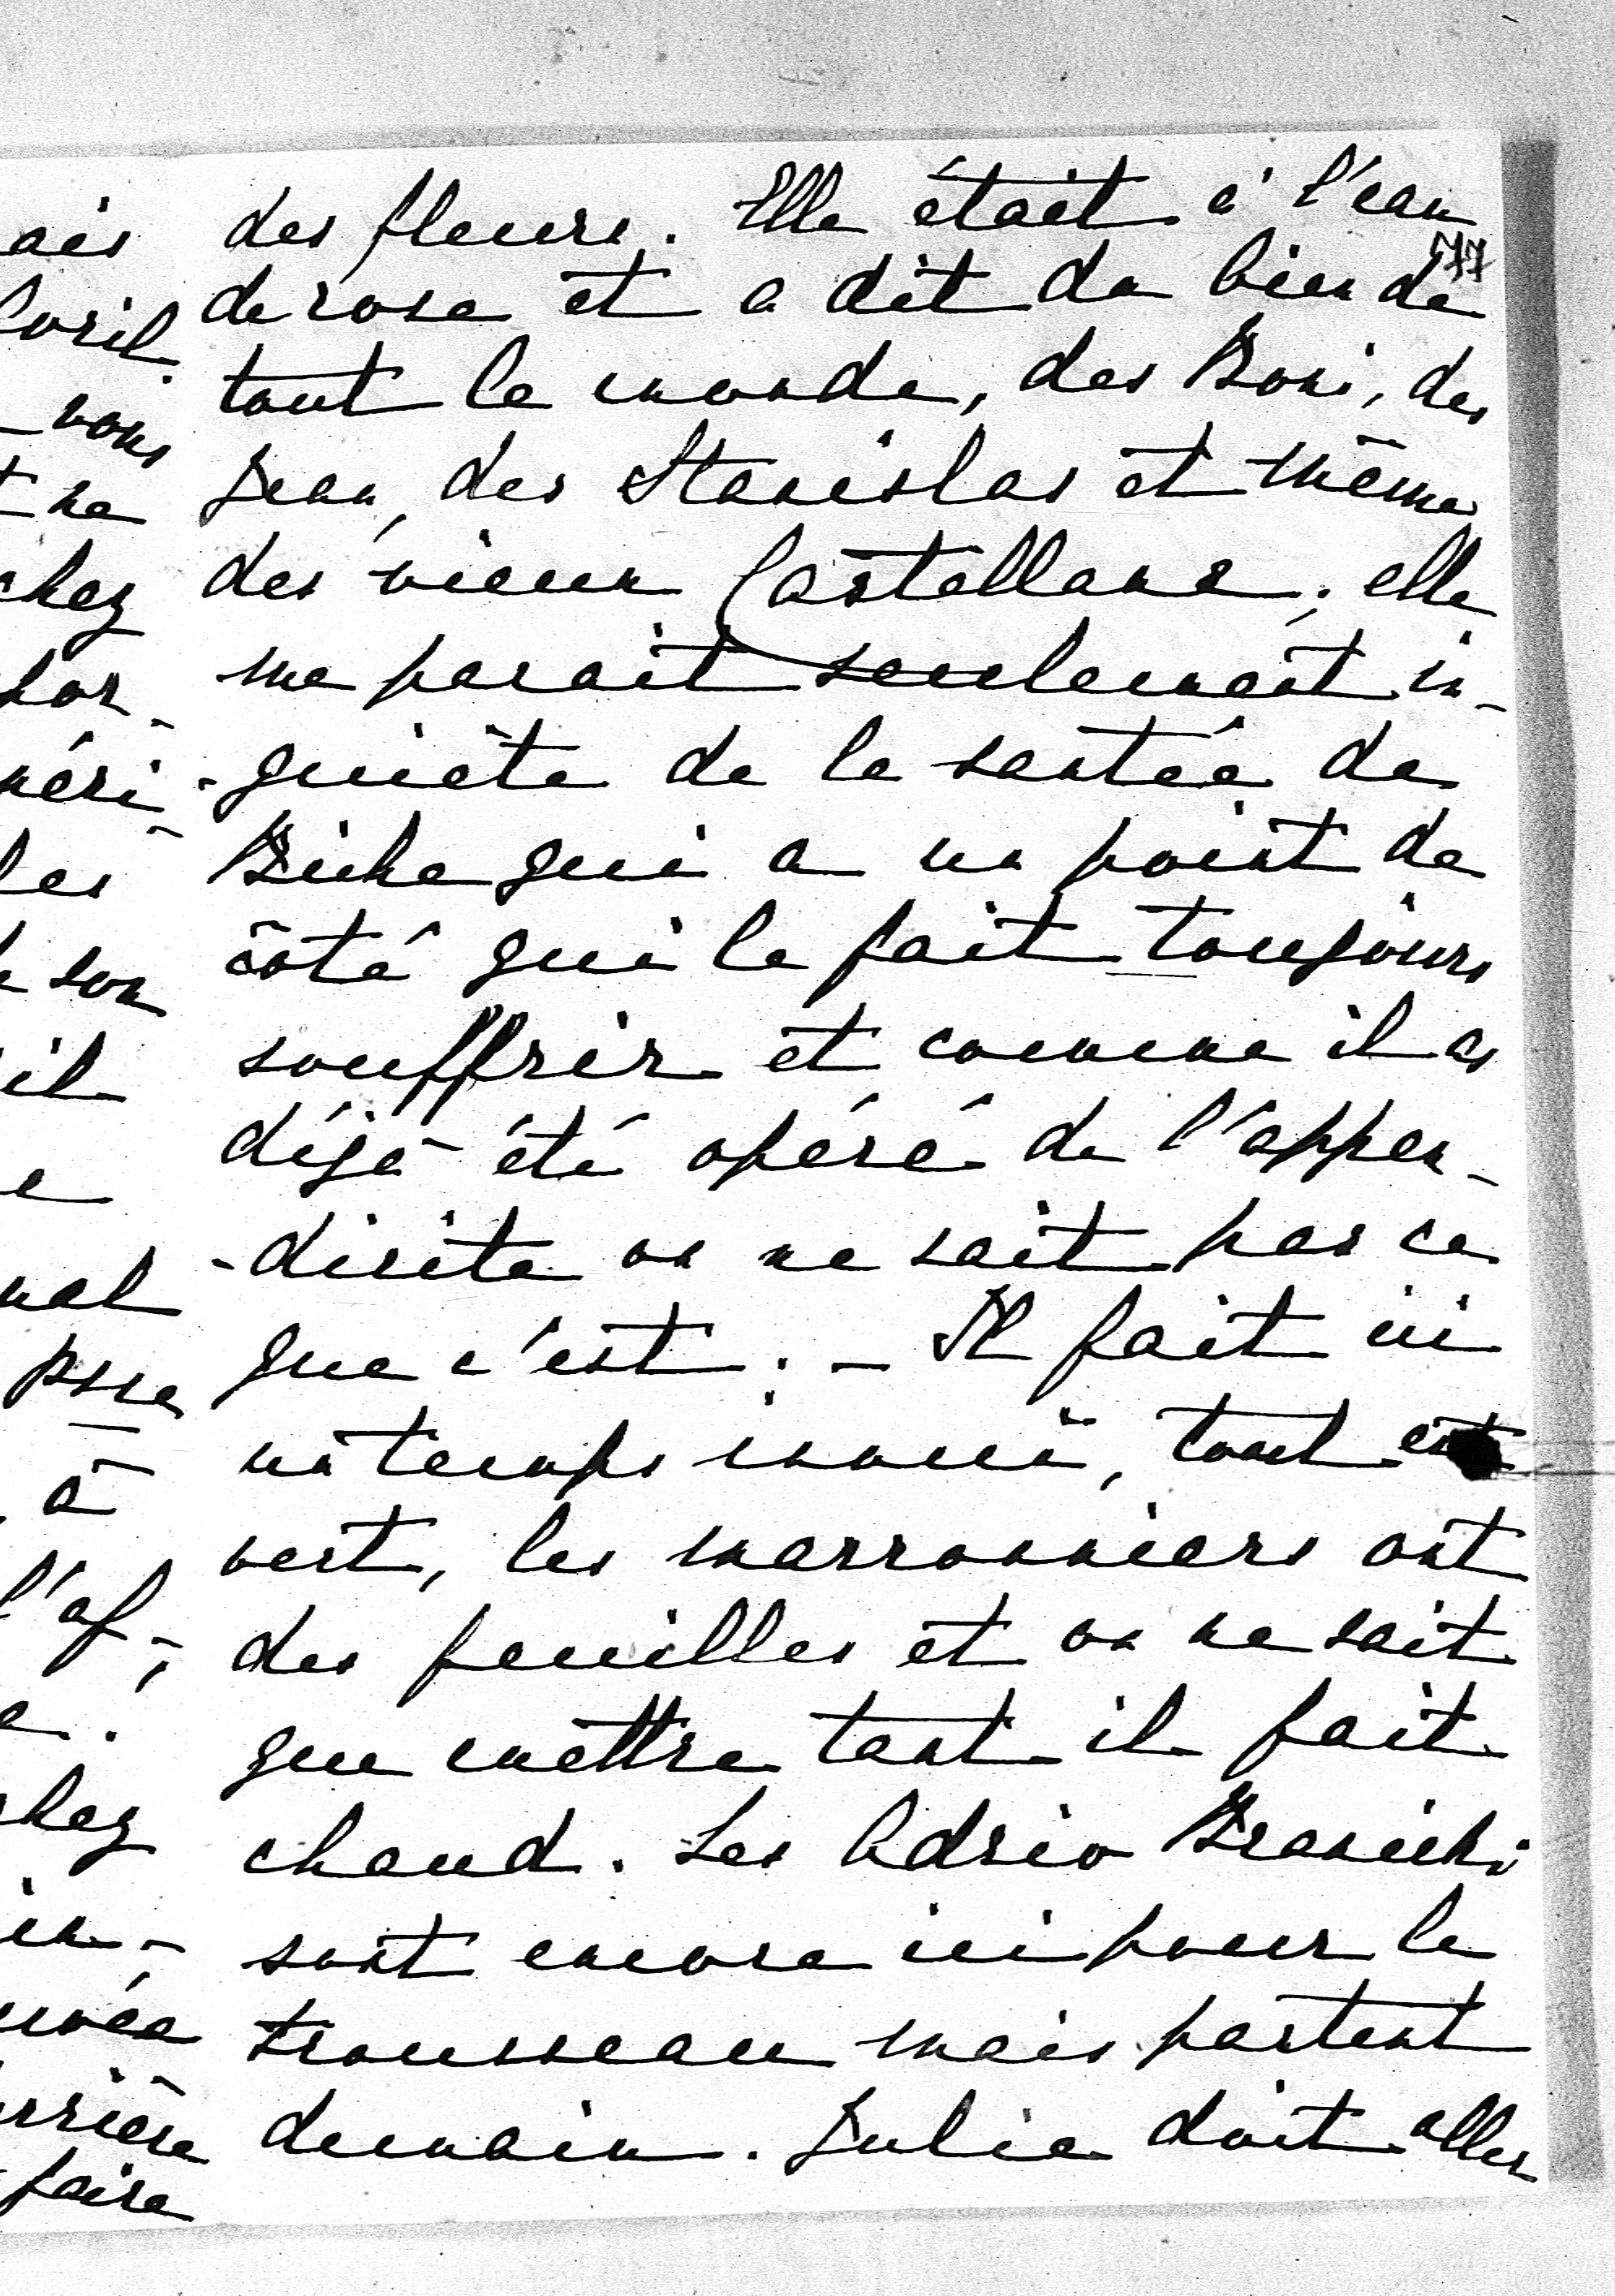 des fleurs. Elle était à l'eau
77
de rose et a dit du bien de
tout le monde, des Boni, des
Jean, des Stanislas et même
des vieux Castellane ; elle
me parait seulement in-
-quiète de la santée de
Biche qui a un point de
côté qui le fait toujours
souffrir et comme il a
déjà été opéré de l'appen-
-dicite on ne sait pas ce
que c'est. - Il fait ici
un temps inouï, tout est
vert, les marronniers ont
des feuilles et on ne sait
que mettre tant il fait
chaud. Les Adrio Branicki
sont encore ici pour le
trousseau mais partent
demain. Julie doit aller
ais
avril.
vous
ne
chez
por-
méri-
les
son
il
e
mal
psse
à
l'af-
e.
chez
in-
uvée
rrière
faire